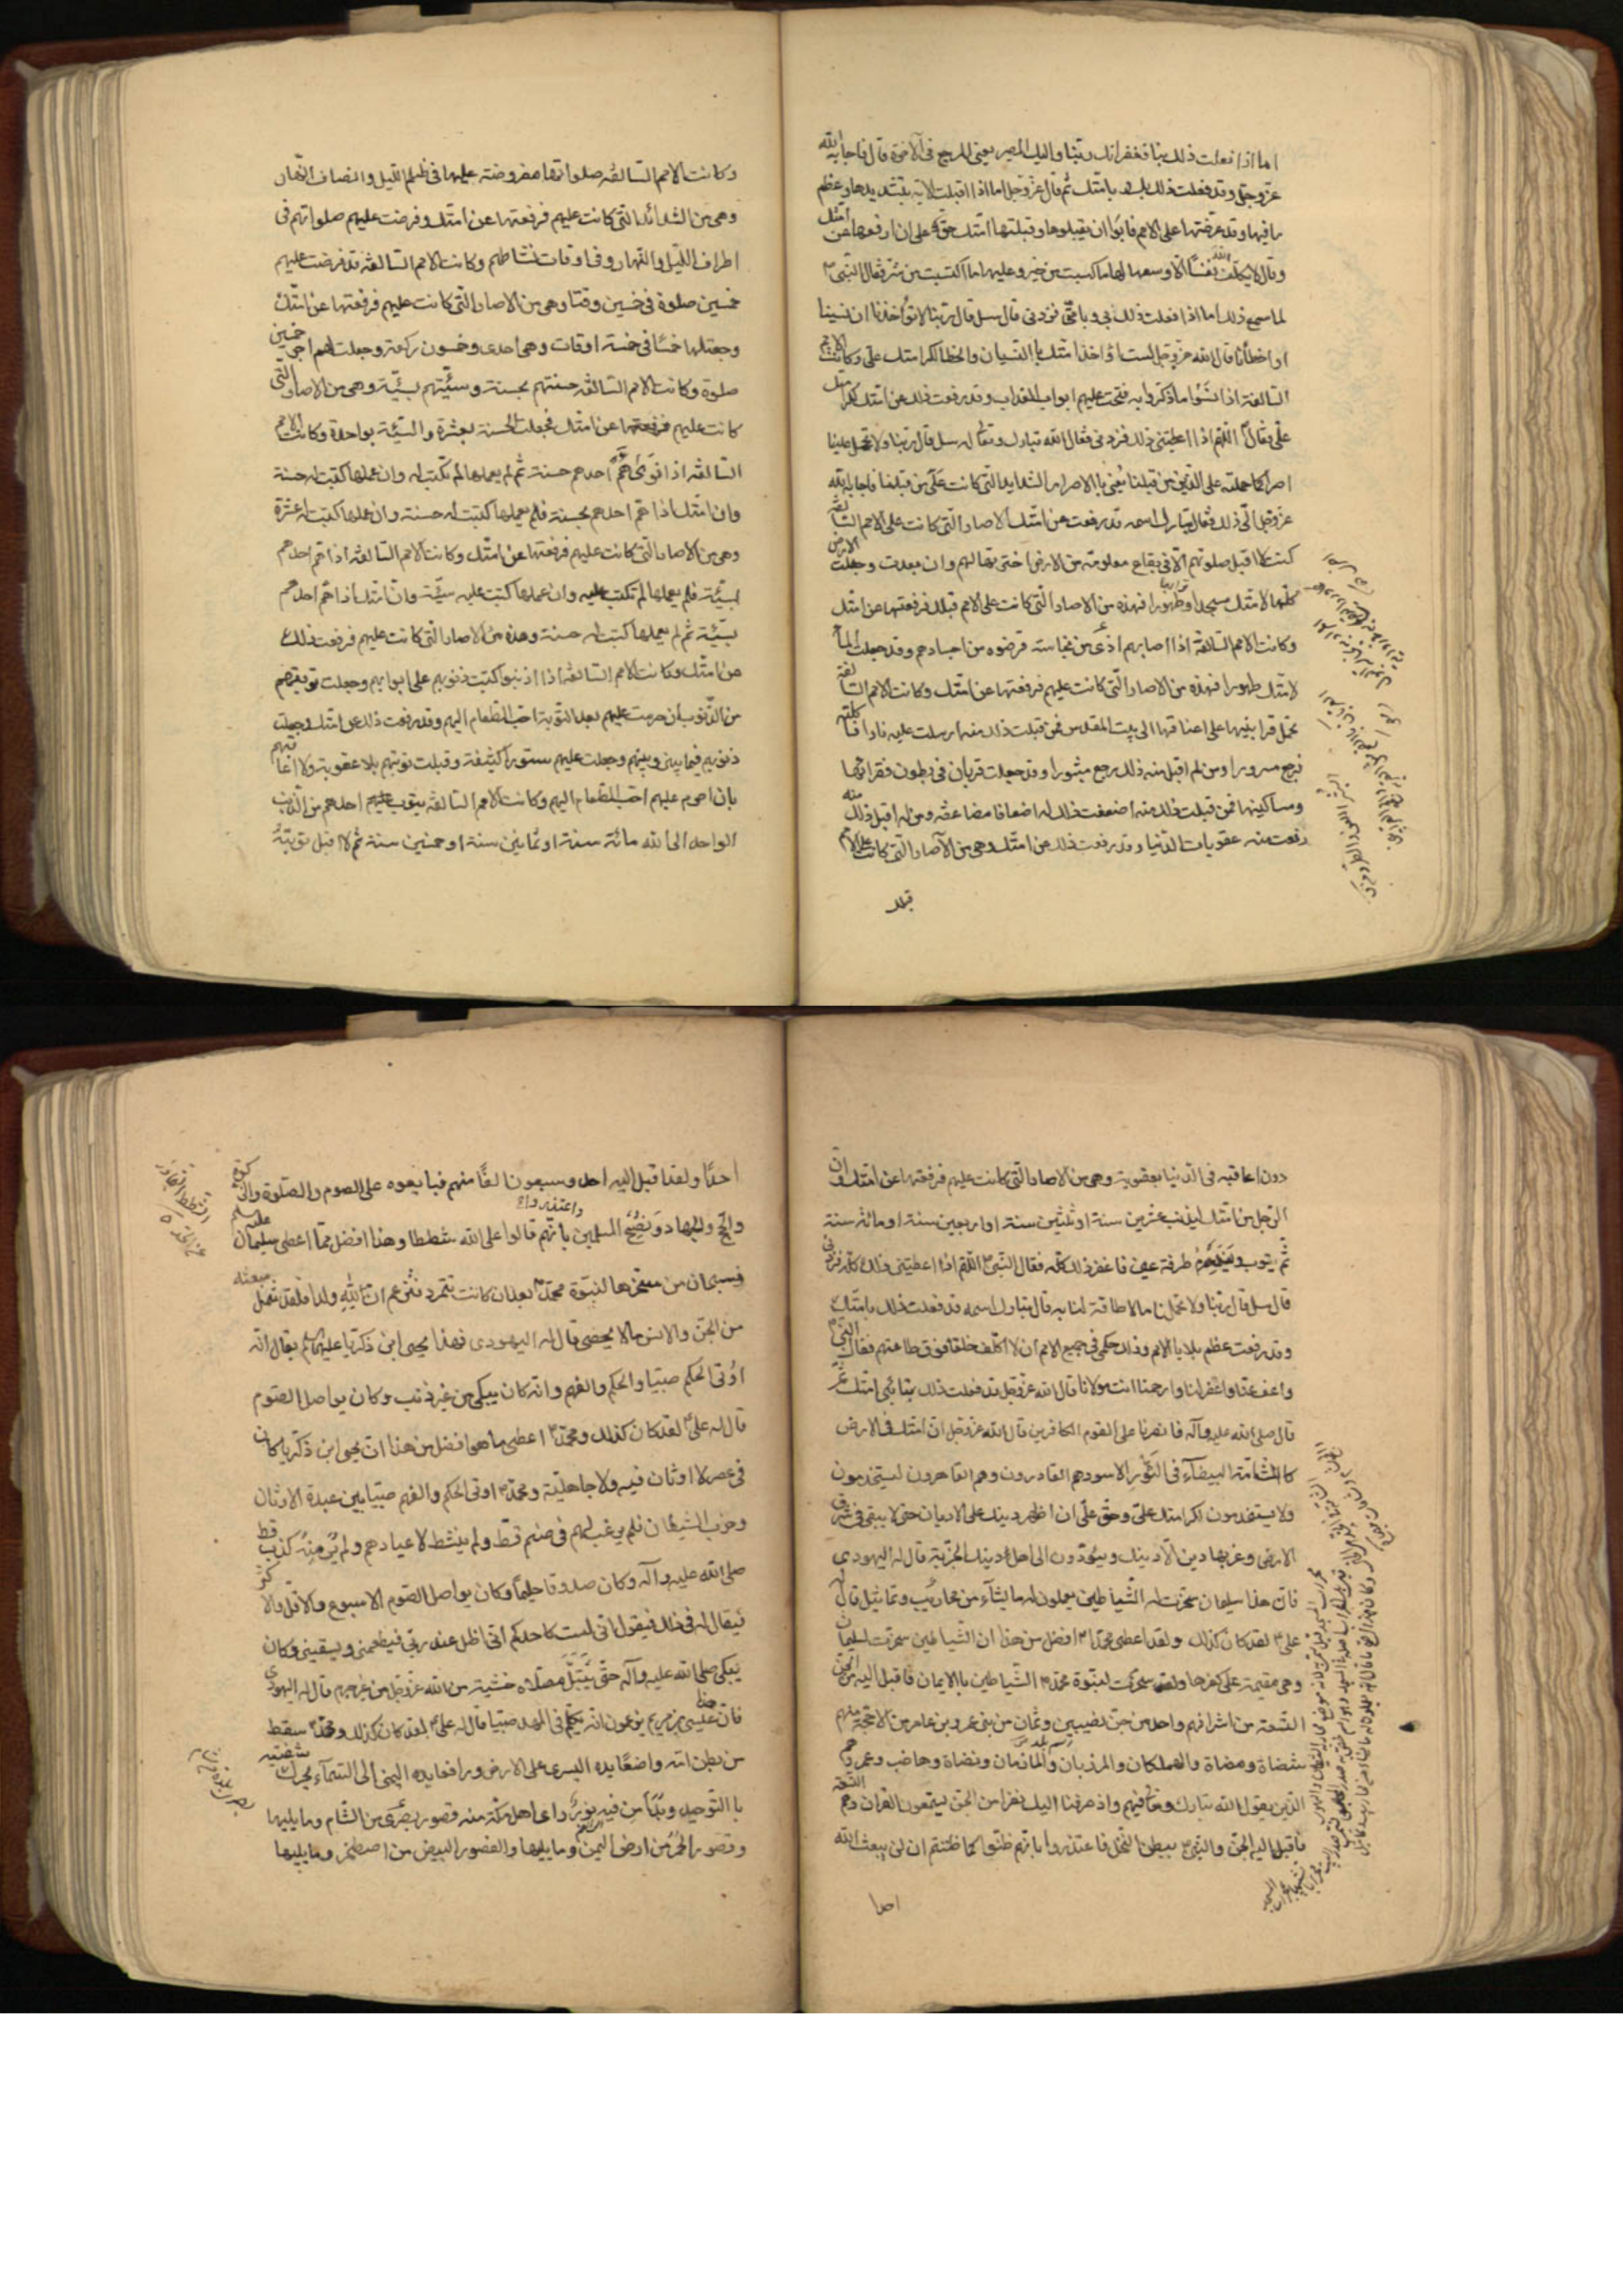 اما اذا فعلت ذلك بنا فغفرانك ربنا واليك المصير يعنى المرجع فى الآخرة قال فاجابه الله
عز وجل وقد فعلت ذلك بك و بامتك ثم قال عز وجل اما اذا قبلت الاية بتشديدها وعظم
ما فيها وقد عرضتها على الامم فابوا ان يقبلوها وقبلتها امتك حق علىّ ان ارفعها عن امتك
وقال لا يكلف الله نفسا الا وسعها لها ما كسبت من خير وعليها ما اكتسبت من شر فقال النبى ص
لما سمع ذلك اما اذا فعلت ذلك بى وبامتى فزدنى قال سل قال ربنا لا تؤاخذنا ان نسينا
او اخطأنا قال الله عز وجل لست اؤاخذ امتك باالنسيان والخطا لكرامتك على وكانت الامم
السالفة اذا نسوا ما ذكروا به فتحت عليهم ابواب العذاب وقد رفعت ذلك عن امتك لكرامتك
علىّ فقال اللهم اذا اعطيتنى ذلك فزدنى فقال الله تبارك وتعالى له سل قال ربنا ولا تحمل علينا
اصرا كما حملته على الذين من قبلنا يعنى باالاصر الشدايد التى كانت على من قبلنا فاجابه الله
عز وجل الى ذلك فقال تبارك اسمه قد رفعت عن امتك الاصار التى كانت على الامم السالفة
كنت لا اقبل صلوتهم الا فى بقاع معلومة من الارض اخترتها لهم وان بعدت وجعلت الارض
كلها لامتك مسجدا وترابها طهورا فهذه من الاصار التى كانت على الامم قبلك فرفعتها عن امتك
وكانت الامم السالفة اذا اصابهم اذى من نجاسة قرضوه من اجسادهم وقد جعلت الماء
لامتك طهورا فهذه من الاصار التى كانت عليهم فرفعتها عن امتك وكانت الامم السالفة
تحمل قرابينها على اعناقها الى بيت المقدس فمن قبلت ذلك منه ارسلت عليه نارا فاكلته
فرجع مسرورا ومن لم اقبل منه ذلك رجع مثبورا وقد جعلت قربان فى بطون فقرائها
ومساكينها فمن قبلت ذلك منه اضعفت ذلك له اضعافا مضاعفة ومن لم اقبل ذلك منه
رفعت منه عقوبات الدنيا وقد رفعت ذلك عن امتك وهى من الآصار التى كانت على الامم
قبلك
وكانت الامم السالفة صلواتها مفروضة عليها فى ظلم الليل وانصاف النهار
وهى من الشدائد التى كانت عليهم فرفعتها عن امتك وفرضت عليهم صلواتهم فى
اطراف الليل والنهار وفى اوقات نشاطهم وكانت الامم السالفة قد فرضت عليهم
خمسين صلوة فى خمسين وقتا وهى من الاصار التى كانت عليهم فرفعتها عن امتك
وجعلتها خمسا فى خمسة اوقات وهى احدى وخمسون ركعة وجعلت لهم اجر خمسين
صلوة وكانت الامم السالفة حسنتهم بحسنة وسيئتهم بسيئة وهى من الاصار التى
كانت عليهم فرفعتها عن امتك فجعلت الحسنة بعشرة والسيئة بواحدة وكانت الامم
السالفة اذا نوى همّ احدهم حسنة ثم لم يعملها لم تكتب له وان عملها كتبت له حسنة
وان امتك اذا همّ احدهم بحسنة فلم يعملها كتبت له حسنة وان عملها كتبت له عشرة
وهى من الاصار التى كانت عليهم فرفعتها عن امتك وكانت الامم السالفة اذا همّ احدهم
بسيئة فلم يعملها لم تكتب عليه وان عملها كتبت عليه سيئة وان امتك اذا همّ احدهم
بسيئة ثم لم يعملها كتبت له حسنة وهذه من الاصار التى كانت عليهم فرفعت ذلك
عن امتك وكانت الامم السالفة اذا اذنبوا كتبت ذنوبهم على ابوابهم وجعلت توبتهم
من الذنوب ان حرمت عليهم بعد التوبة احب الطعام اليهم وقد رفعت ذلك عن امتك وجعلت
ذنوبهم فيما بينى وبينهم وجعلت عليهم ستورا كثيفة وقبلت توبتهم بلا عقوبة ولا اعاقبهم
بان احرم عليهم احب الطعام اليهم وكانت الامم السالفة يتوب احدهم من الذنب
الواحد الى الله مائة سنة او ثمانين سنة او خمسين سنة ثم لا اقبل توبته
دون اعاقبه فى الدنيا بعقوبة وهى من الاصار التى كانت عليهم فرفعتها عن امتك وان
الرجل من امتك ليذنب عشرين سنة او ثلثين سنة او اربعين سنة او مائة سنة
ثم يتوب ويندم طرفة عين فاغفر ذلك كله فقال النبى ص اللهم اذا اعطيتنى ذلك كله فزدنى
قال سل قال ربنا ولا تحملنا ما لا طاقة لنا به قال تبارك اسمه قد فعلت ذلك بامتك
وقد رفعت عظم بلايا الامم وذلك حكمى فى جميع الامم ان لا اكلف خلقا فوق طاقتهم فقال النبى ص
واعف عنا واغفر لنا وارحمنا انت مولانا قال الله عز وجل قد فعلت ذلك بتائبى امتك ثم
قال صلى الله عليه وآله فانصرنا على القوم الكافرين قال الله عز وجل ان امتك فى الارض
كاالشامة البيضآء فى الثور الاسود هم القادرون وهم القاهرون يستخدمون
ولا يستخدمون لكرامتك علىّ وحق علىّ ان اظهر دينك على الاديان حتى لا يبقى فى شرق
الارض وغربها دين الا دينك ويؤدون الى اهل دينك الجزية قال له اليهودى
فان هذا سليمان سخرت له الشياطين يعملون له ما يشآء من محاريب وتماثيل قال له
على ع لقد كان كذلك ولقد اعطى محمد ص افضل من هذا ان الشياطين سخرت لسليمان
وهى مقيمة على كفرها ولقد سخرت لنبوة محمد ص الشياطين باالايمان فاقبل اليه من الجن
التسعة من اشرافهم واحد من جن نصيبين وثمان من بنى عمرو بن عامر من الاحجة منهم
شضاة ومضاة والهملكان والمرزبان والمازمان ونضاة وهاضب وعمرو هم
الذين يقول الله تبارك وتعالى فيهم واذ صرفنا اليك نفرا من الجن يستمعون القران وهم التسعة
فاقبل اليه الجن والنبى ص ببطن النخل فاعتذروا بانهم ظنوا كما ظننتم ان لن يبعث الله
احدا
احدا ولقد اقبل اليه احد وسبعون الفا منهم فبايعوه على الصوم والصلوة والزكوة
والحج والجهاد ونصح المسلمين واعتذروا بانهم قالوا على الله شططا وهذا افضل مما اعطى سليمان
فسبحان من سخرها لنبوة محمد ص بعد ان كانت تتمرد وتزعم ان لله ولدا فلقد شمل مبعثه
من الجن والانس ما لا يحصى قال له اليهودى فهذا يحيى ابن ذكريا عليهما يقال انه
اوتى الحكم صبيا والحكم والفهم وانه كان يبكى من غير ذنب وكان يواصل الصوم
قال له على ع لقد كان كذلك ومحمد ص اعطى ما هو افضل من هذا ان يحيى ابن ذكريا كان
فى عصر لا اوثان فيه ولا جاهلية ومحمد ص اوتى الحكم والفهم صبيا بين عبدة الاوثان
وحزب الشيطان فلم يرغب لهم فى صنم قط ولم ينشط لاعيادهم ولم ير منه كذب قط
صلى الله عليه وآله وكان صدوقا حليما وكان يواصل الصوم الاسبوع والاقل والاكثر
فيقال له فى ذلك فيقول انى لست كاحدكم انى اظل عند ربى فيطعمنى ويسقينى وكان
يبكى صلى الله عليه وآله حتى يبتل مصلاه خشية من الله عز وجل من غير جرم قال له اليهودى
فان هذا عيسى بن مريم يزعمون انه تكلم فى المهد صبيا قال له على ع لقد كان كذلك ومحمد ص سقط
من بطن امه واضعا يده اليسرى على الارض ورافعا يده اليمنى الى السمآء يحرك شفتيه
باالتوحيد وبدا من فيه نور راى اهل مكة منه قصور بصرى من الشام وما يليها
وقصور الحمر من ارض اليمن وما يليها والقصور البيض من اصطخر وما يليها